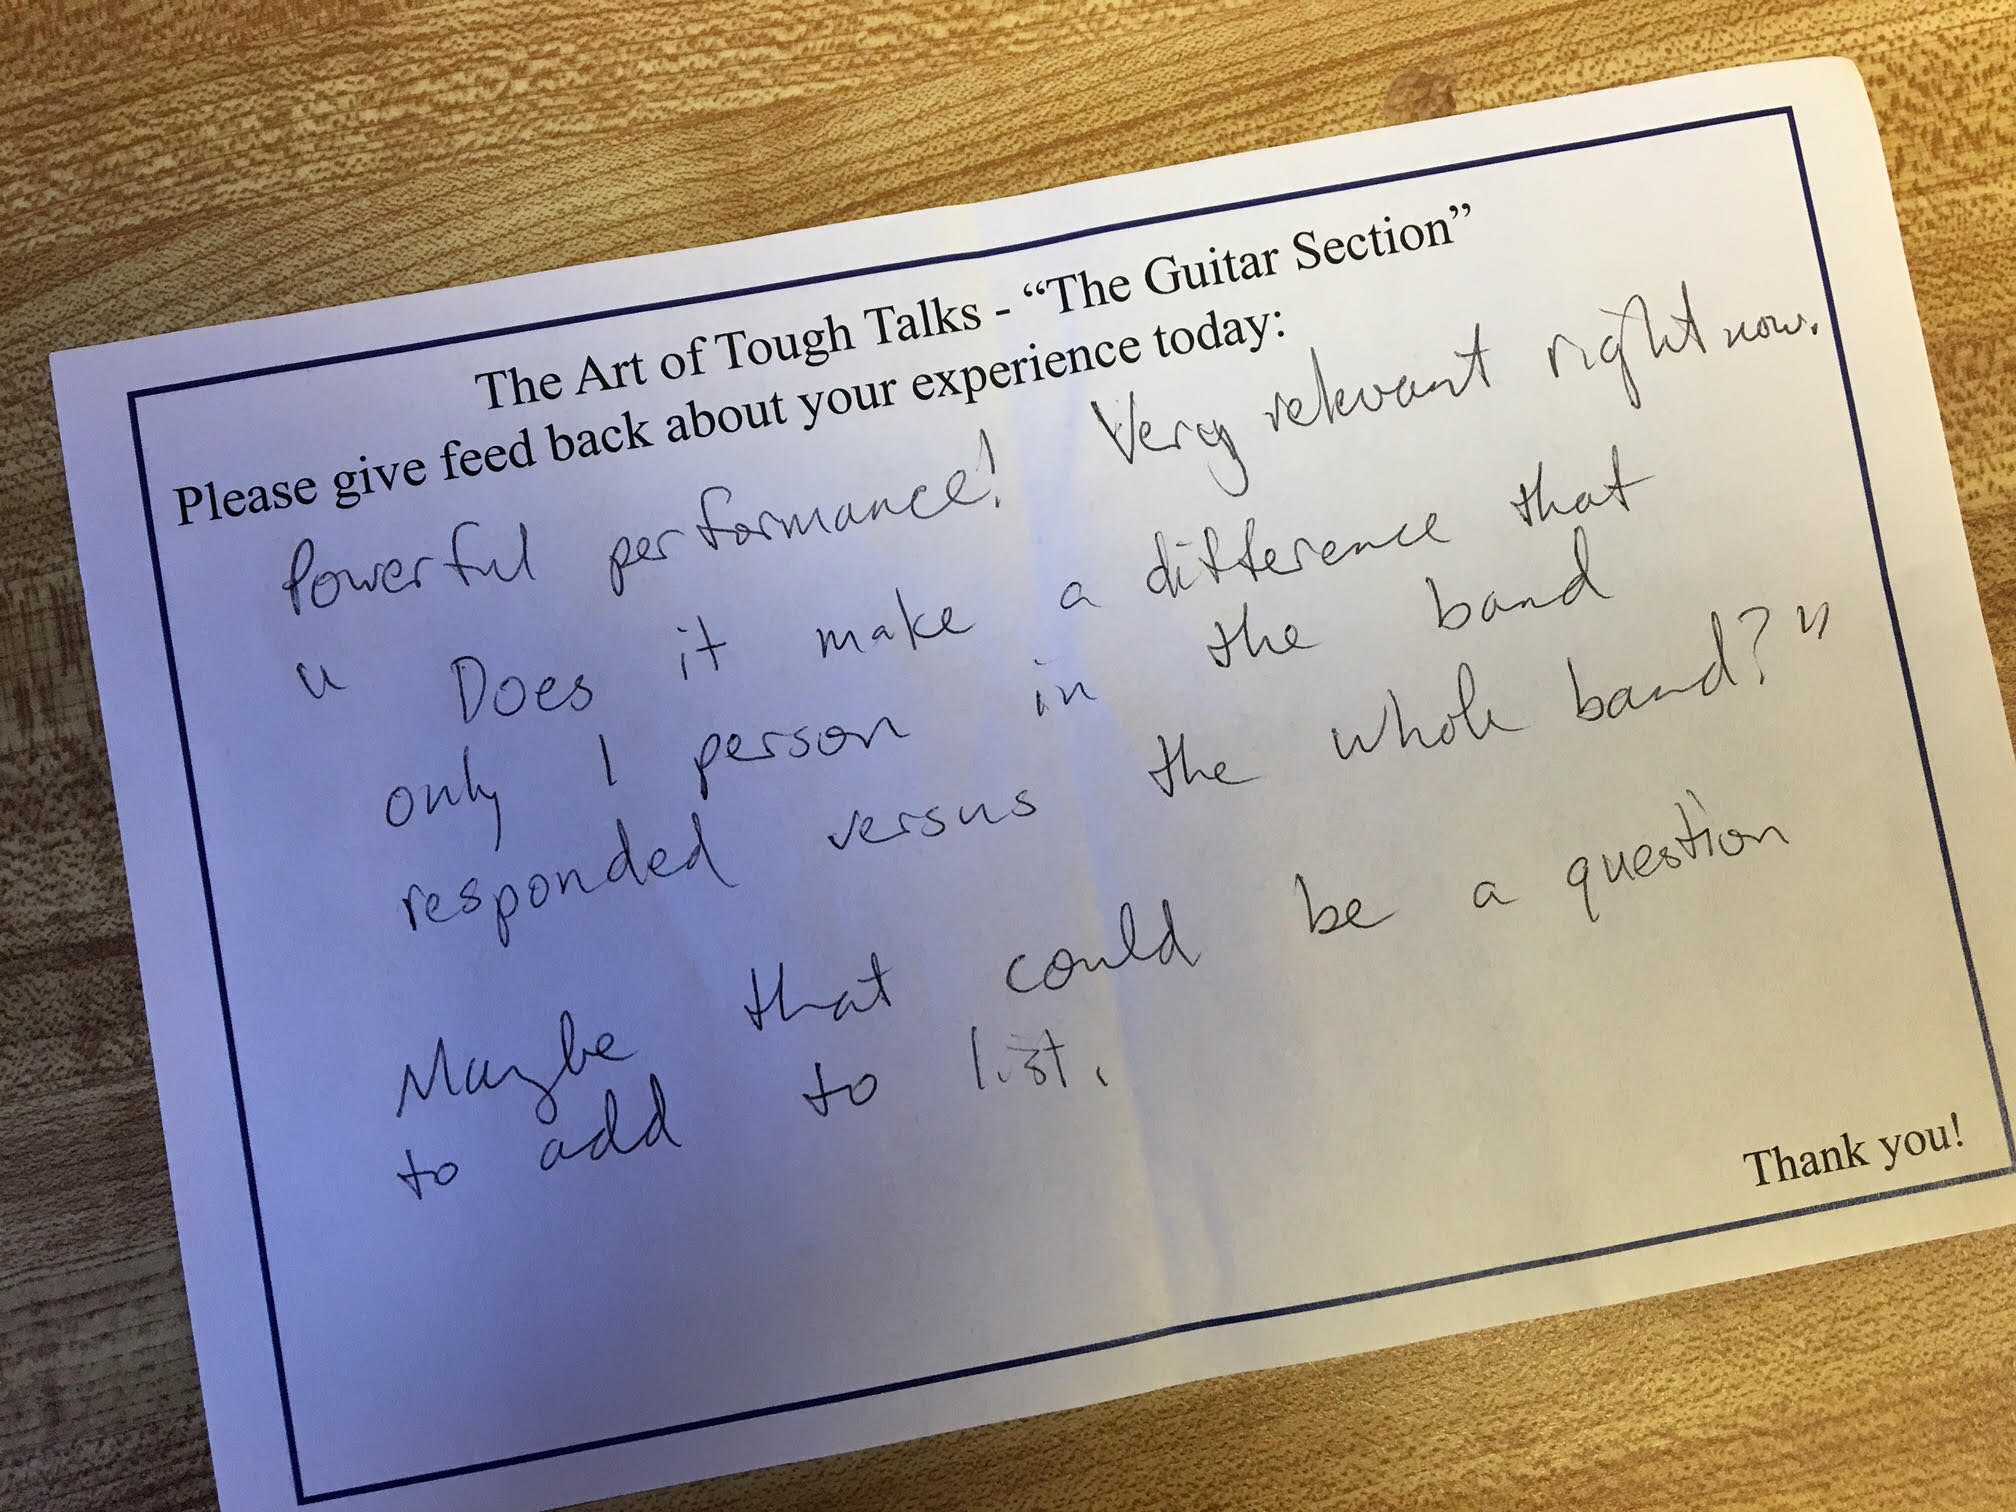 The Art of Tough Talks - “The Guitar Section”
Please give feed back about your experience today:
Powerful performance! Very relevant right now.
" Does it make a difference that
only 1 person in the band
responded versus the whole band?"
Maybe that could be a question
to add to list.
Thank you!